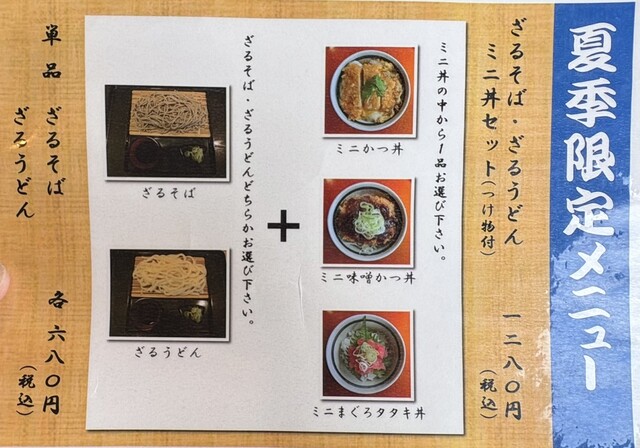 夏季限定メニュー
ざるそば・ざるうどん
ミニ丼セット(つけ物付)
一二八〇円
(税込)
ミニ丼の中から1品お選び下さい。
ミニかつ丼
ミニ味噌かつ丼
ミニまぐろタタキ丼
+
ざるそば・ざるうどんどちらかお選び下さい。
ざるそば
ざるうどん
単品 ざるそば
ざるうどん
各六八〇円
(税込)